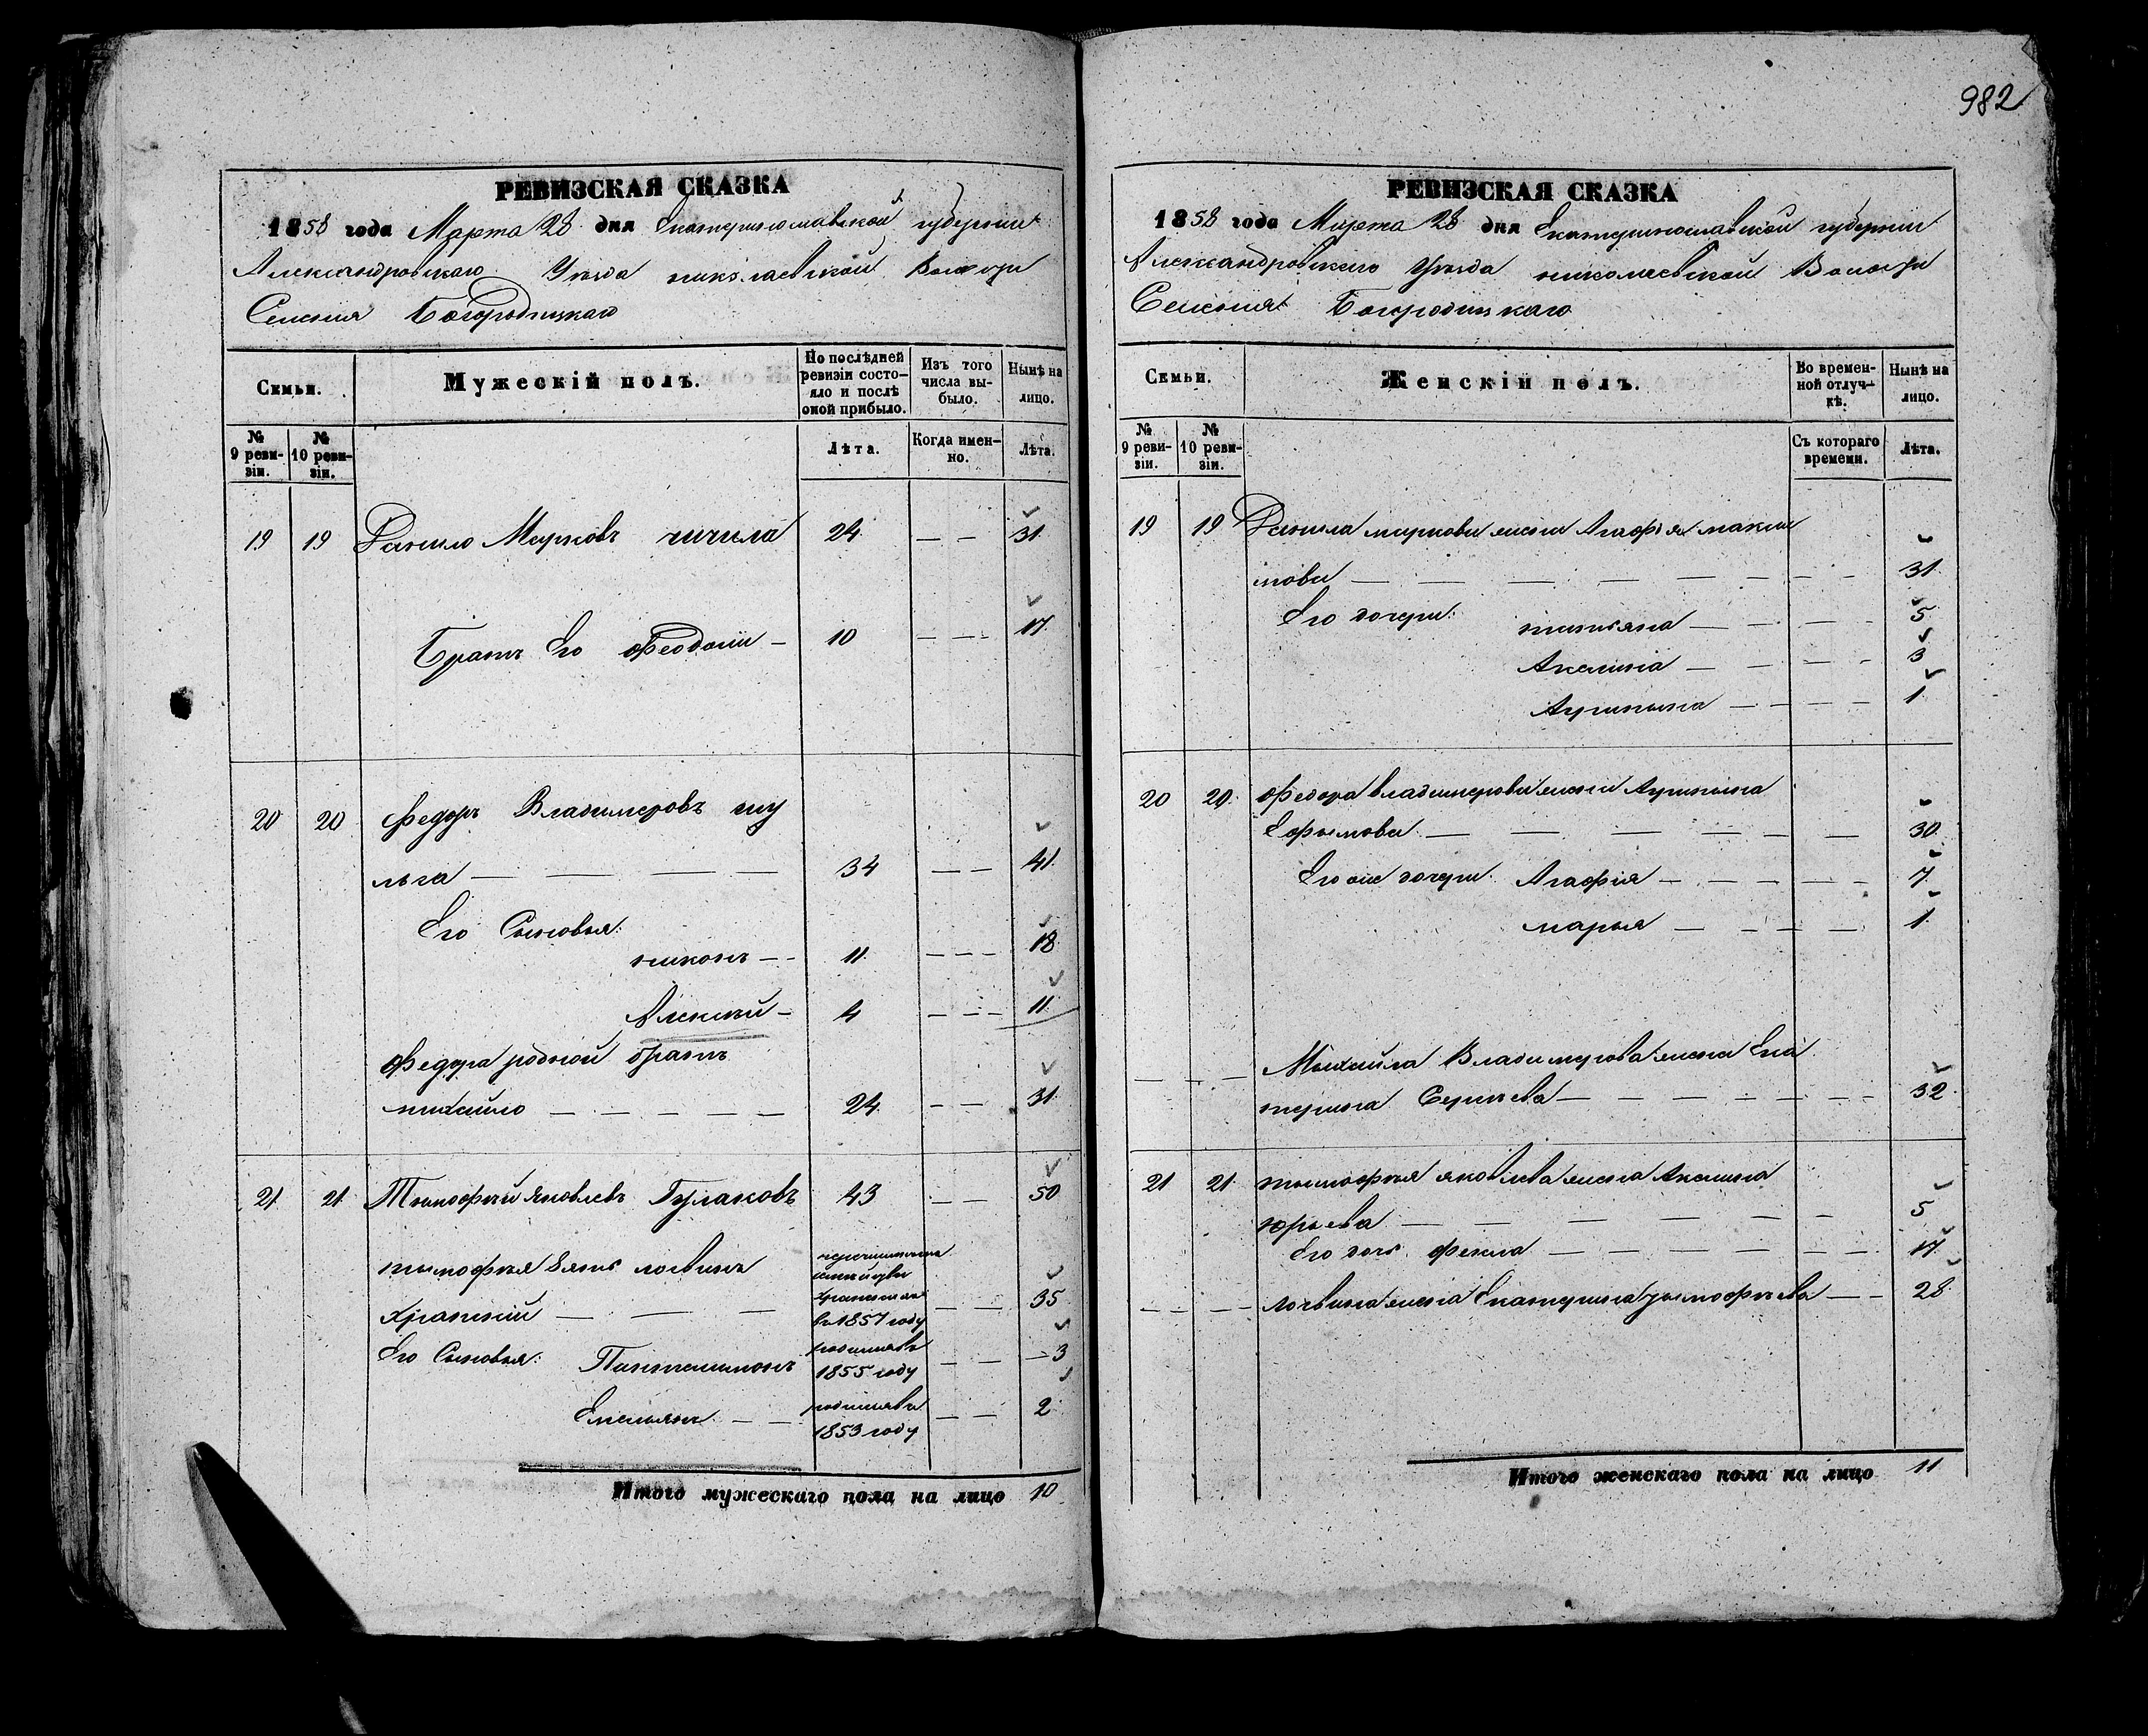 982
РЕВИЗСКАЯ СКАЗКА
1858 года Марта 28 дня Екатеринославской губернии
Александровскаго Уезда николаевской Волости
Селения Богородицкаго
Семьи.
Мужескій полъ.
По послѣдней ревизіи состояло и послѣ оной прибыло.
Изъ того числа выбыло.
Нынѣ на лицо.
№ 9 ревизіи.
№ 10 ревизіи.
Лѣта.
Когда именно.
Лѣта.
19 19 Данило Марковъ чичила 24 — — 31
Братъ Его Феодосій — 10 — — 17
20 20 Федоръ Владимеровъ шу
льга — — — — 34 — — 41
Его Сыновья:
никонъ — — 11 — — — 18
Алексѣй — 4 — — — 11
Федора родной братъ
михайло — — — — — 24 — — 31
21 21 Тимофѣй Яковлевъ Гулаковъ 43 — — 50
тимофѣя Зять логвинъ
— — в 1857 году — — 35
Его Сыновья: Пантелимонъ родился въ 1855 году — — 3
Емельянъ — — родился въ 1853 году — — 2
Итого мужескаго пола на лицо 10
РЕВИЗСКАЯ СКАЗКА
1858 года Марта 28 дня Екатеринославской губернии
Александровскаго Уезда николаевской Волости
Селения Богородицкаго
Семьи.
Женскій полъ.
Во временной отлучкѣ.
Нынѣ на лицо.
№ 9 ревизіи.
№ 10 ревизіи.
Съ котораго времени.
Лѣта.
19 19 Данила маркова жена Агафия макси
мова — — — — — — — — 31
Его дочери: татьяна — — — — — 5
Акелина — — — — — 3
Ауликына — — — — 1
20 20 Федора владимерова жена
Ефимова — — — — — — 30
Его же дочери Агафія — — — — — 7
марья — — — — — 1
— — — Михайла Владимерова жена Ека
терина Сергѣева — — — — — — — 32
21 21 тимофѣя яковлева жена Акелина
юрьева — — — — — — 5
Его дочь фекла — — — — — — — 17
— — — логвина жена Екатерина тимофѣева — — 28
Итого женскаго пола на лицо 11